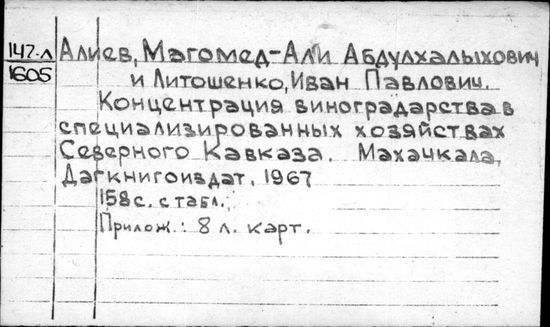 147-л
1605
Алиев, Магомед-Али Абдулхалыхович
и Литошенко, Иван Павлович.
Концентрация виноградарства в
специализированных хозяйствах
Северного Кавказа. Махачкала,
Дагкнигоиздат, 1967
158 с. с табл.;
Прилож.: 8 л. карт.